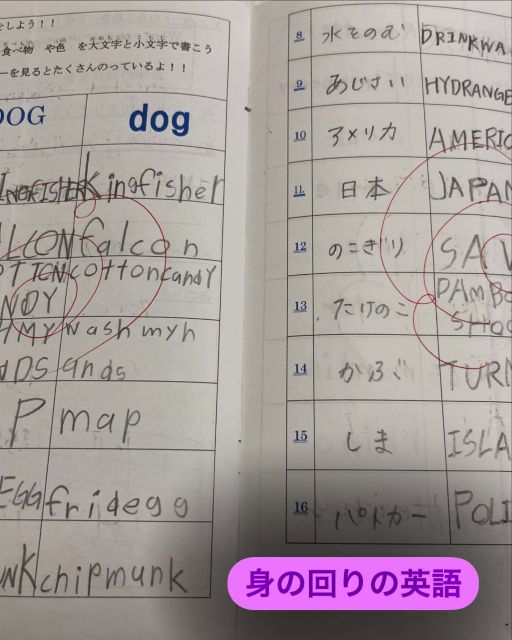 をしよう！！
食べ物 や色 を大文字と小文字で書こう
ーを見るとたくさんのっているよ！！
DOG dog
INGKFISHER kingfisher
LCON falcon
OTTON cottoncandy
NDY
HMY washmyh
NDS ands
P map
EGG fridegg
UNK chipmunk
8 水をのむ DRINKWA
9 あじさい HYDRANGE
10 アメリカ AMERIC
11 日本 JAPAN
12 のこぎり SAW
13 たけのこ BAMBO
SHOO
14 かぶ TURN
15 しま ISLA
16 パトカー POLI
身の回りの英語